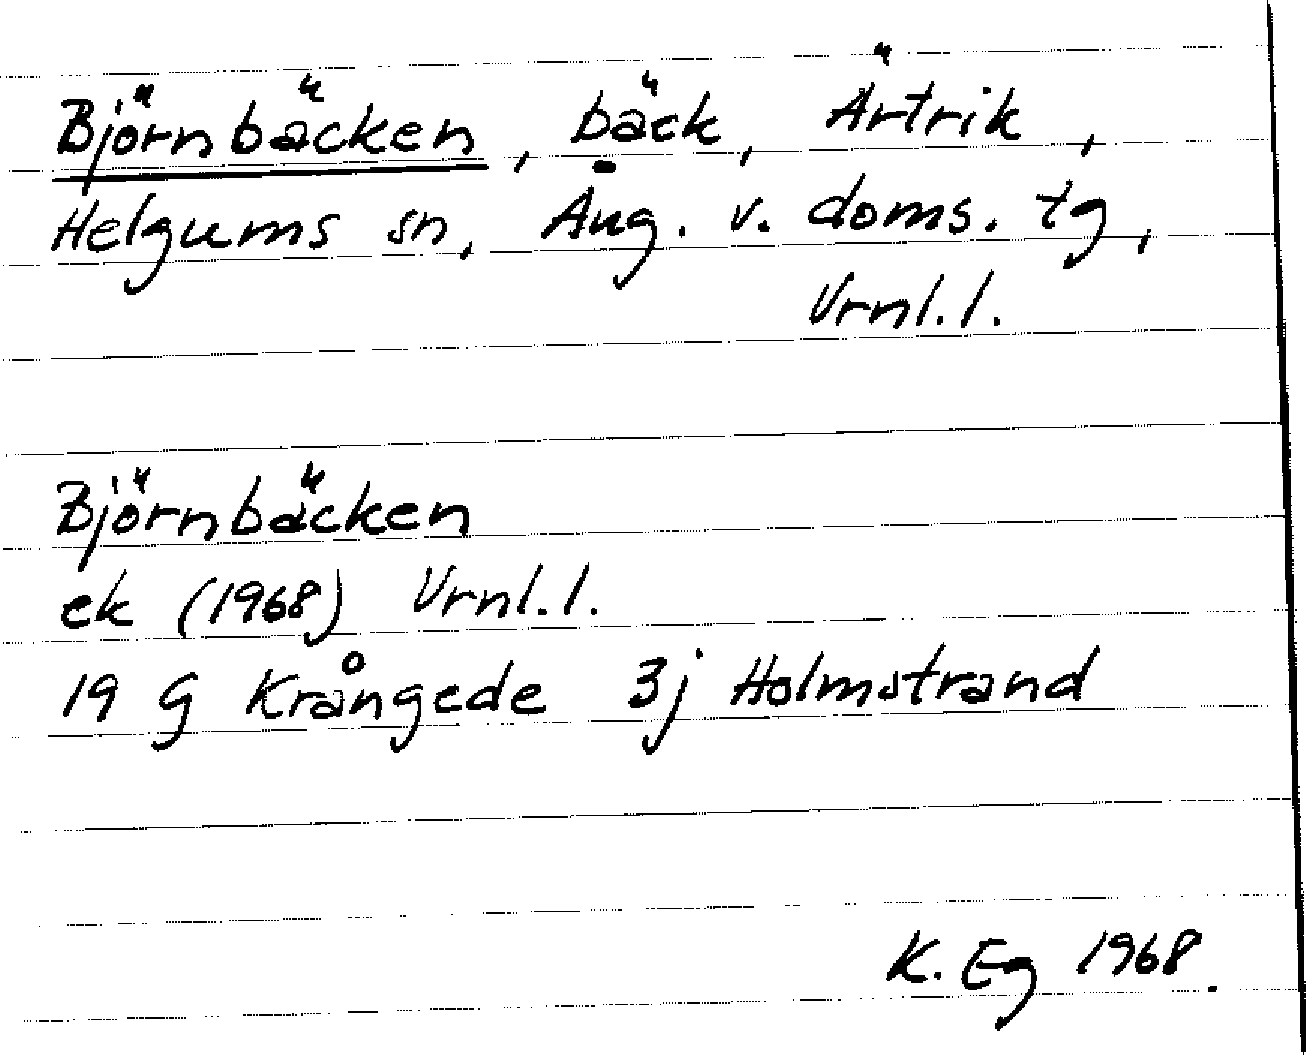 Björnbäcken, bäck, Ärtrik,
Helgums sn, Äng. v. doms. tg,
Vrnl.l.
Björnbäcken
ek (1968) Vrnl.l.
19 G Krångede 3j Holmstrand
K. Eg 1968.